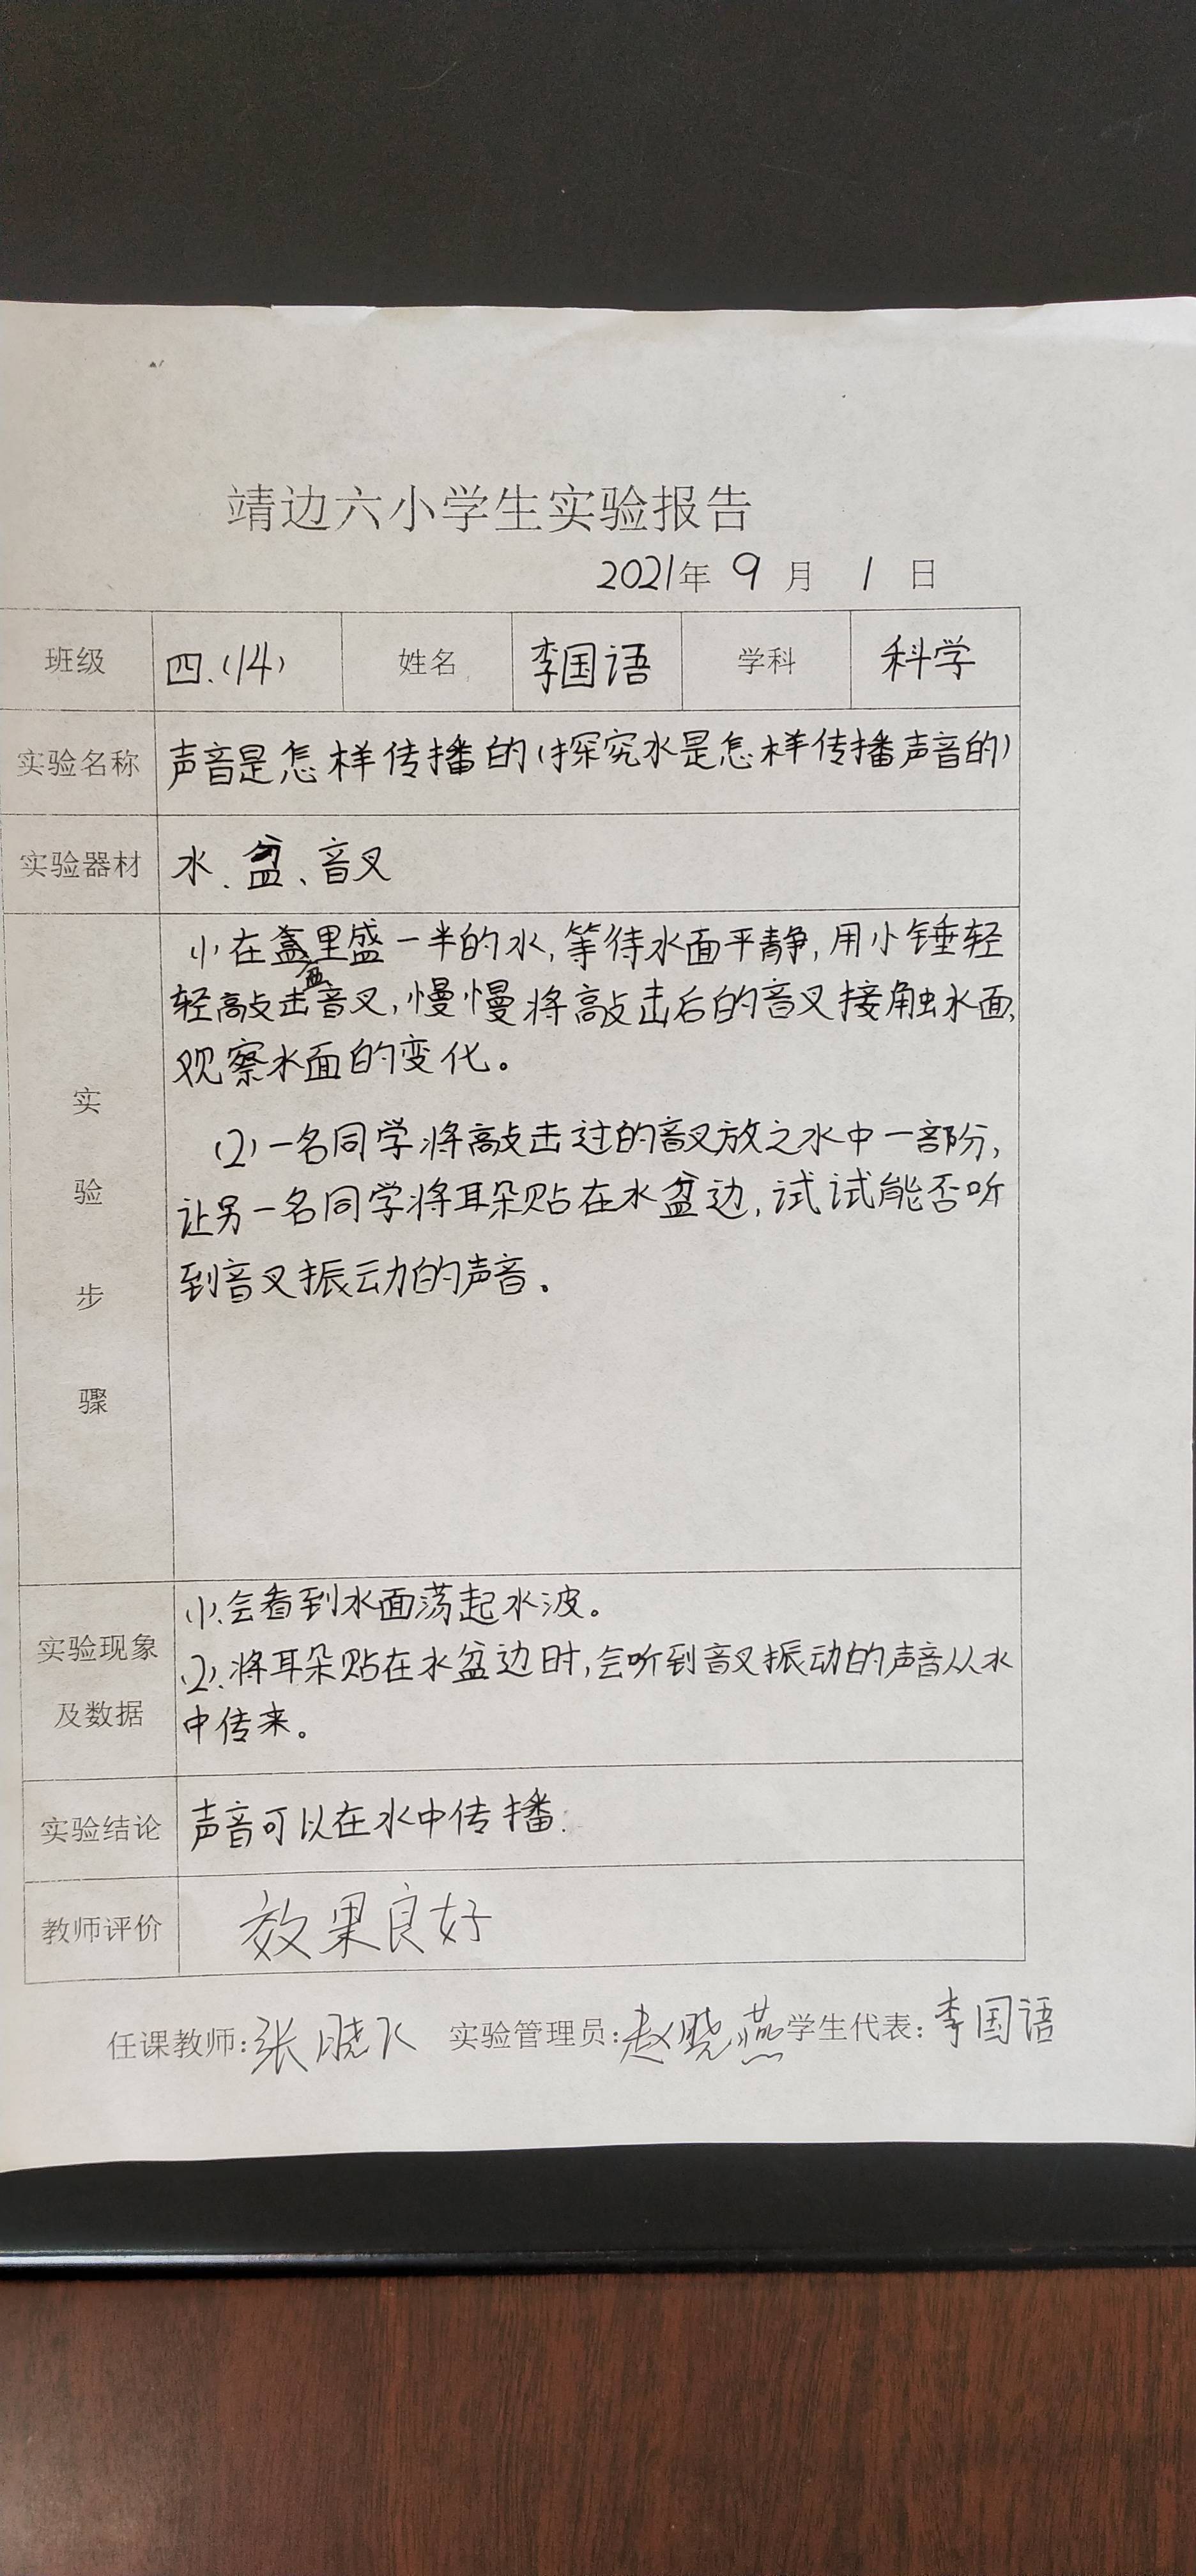 靖边六小学生实验报告
2021年 9 月 1 日
班级 四.(14) 姓名 李国语 学科 科学
实验名称 声音是怎样传播的(探究水是怎样传播声音的)
实验器材 水、盆、音叉
实验步骤
(1)在盆里盛一半的水,等待水面平静,用小锤轻
轻敲击音叉,慢慢将敲击后的音叉接触水面,
观察水面的变化。
(2)一名同学将敲击过的音叉放之水中一部份,
让另一名同学将耳朵贴在水盆边,试试能否听
到音叉振动的声音.
实验现象及数据
(1).会看到水面荡起水波。
(2).将耳朵贴在水盆边时,会听到音叉振动的声音从水
中传来。
实验结论 声音可以在水中传播.
教师评价 效果良好
任课教师:张晓 实验管理员:赵晓燕 学生代表:李国语